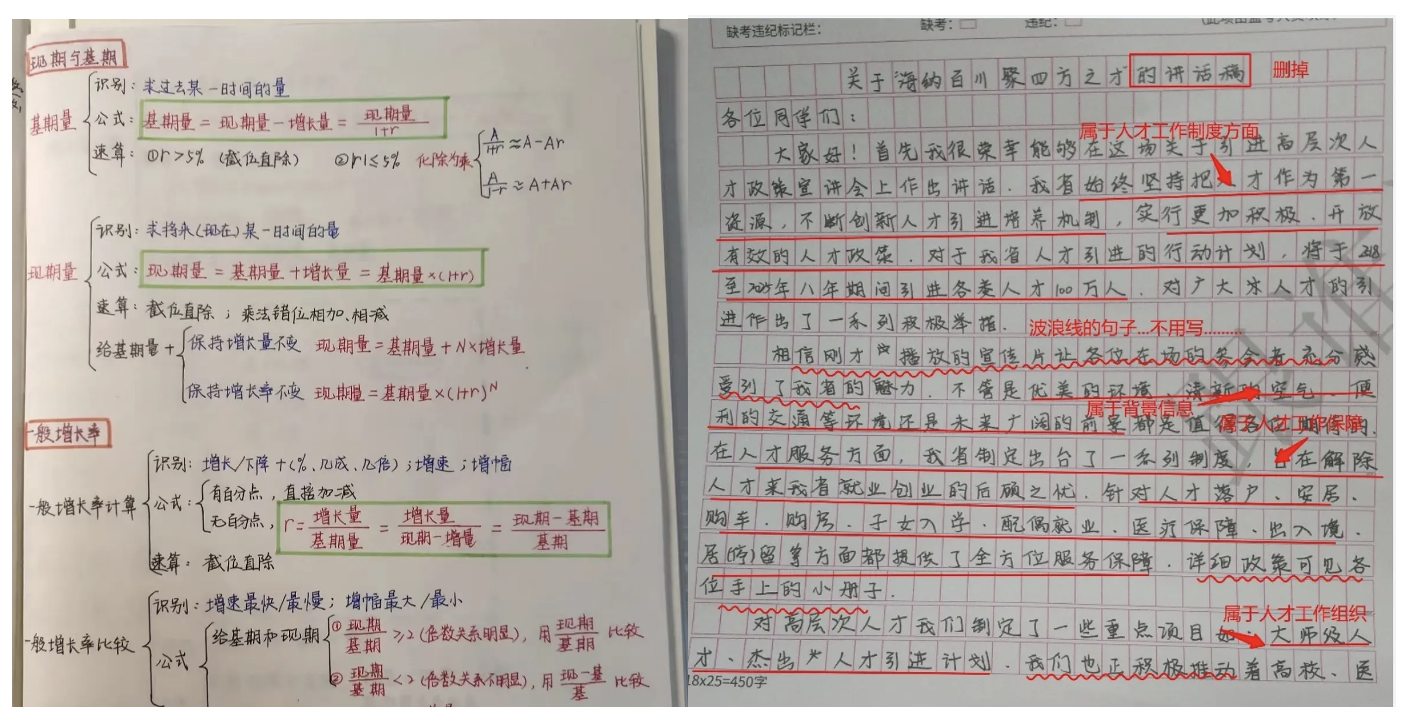 现期与基期
基期量
识别：求过去某一时间的量
公式：基期量 = 现期量 - 增长量 = 现期量/1+r
速算：①r>5%（截位直除） ②|r|≤5% 化除为乘
A/1+r ≈ A-Ar
A/1-r ≈ A+Ar
现期量
识别：求将来(现在)某一时间的量
公式：现期量 = 基期量 + 增长量 = 基期量×(1+r)
速算：截位直除；乘法错位相加、相减
给基期量+
保持增长量不变 现期量=基期量+N×增长量
保持增长率不变 现期量=基期量×(1+r)^N
一般增长率
一般增长率计算
识别：增长/下降+(%、几成、几倍)；增速；增幅
公式：
有百分点，直接加减
无百分点，r=增长量/基期量 = 增长量/现期-增量 = 现期-基期/基期
速算：截位直除
一般增长率比较
识别：增速最快/最慢；增幅最大/最小
公式
给基期和现期
①现期/基期 ≥2(倍数关系明显)，用现期/基期 比较
②现期/基期 <2(倍数关系不明显)，用现-基/基 比较
缺考违纪标记栏：
缺考：
违纪：
关于"海纳百川聚四方之才"的讲话稿
删掉
各位同学们：
属于人才工作制度方面
大家好！首先我很荣幸能够在这场关于引进高层次人
才政策宣讲会上作出讲话．我省始终坚持把人才作为第一
资源，不断创新人才引进培养机制，实行更加积极、开放
有效的人才政策．对于我省人才引进的行动计划，将于2018
至2025年八年期间引进各类人才100万人．对广大 人才的引
进作出了一系列积极举措．
波浪线的句子...不用写.........
相信刚才 播放的宣传片让各位在场的参会者充分感
受到了我省的魅力．不管是优美的环境、清新的空气、便
利的交通等环境还是未来广阔的前景都是值得各位期待的．
属于背景信息
属于人才工作保障
在人才服务方面，我省制定出台了一系列制度，旨在解除
人才来我省就业创业的后顾之忧．针对人才落户、安居、
购车、购房、子女入学、配偶就业、医疗保障、出入境、
居(停)留等方面都提供了全方位服务保障．详细政策可见各
位手上的小册子．
属于人才工作组织
对高层次人才我们制定了一些重点项目如：大师级人
才、杰出 人才引进计划．我们也正积极推动着高校、医
18x25=450字